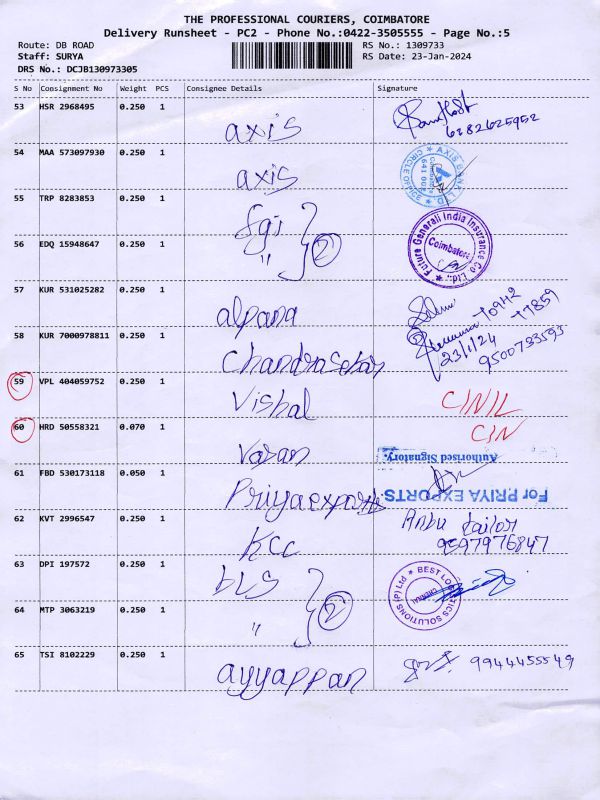 THE PROFESSIONAL COURIERS, COIMBATORE
Delivery Runsheet - PC2 - Phone No.:0422-3505555 - Page No.:5
Route: DB ROAD
RS No.: 1309733
Staff: SURYA
RS Date: 23-Jan-2024
DRS No.: DCJB130973305
S No Consignment No Weight PCS Consignee Details Signature
53 HSR 2968495 0.250 1
axis
6282625952
54 MAA 573097930 0.250 1
axis
AXIS BANK LTD. CIRCLE OFFICE
641
55 TRP 8283853 0.250 1
fgi
56 EDQ 15948647 0.250 1
" 2
Future Generali India Insurance Co Ltd.,
Coimbatore
57 KUR 531025282 0.250 1
alpana
58 KUR 7000978811 0.250 1
23/1/24
9500733593
Chandrasekar
59 VPL 404059752 0.250 1
Vishal
CINIL
60 HRD 50558321 0.070 1
CIN
Varan
Authorised Signatory.
61 FBD 530173118 0.050 1
Priyaexports
For PRIYA EXPORTS
62 KVT 2996547 0.250 1
Anbu tailor
9597976847
KCC
63 DPI 197572 0.250 1
bLS
BEST LOGISTICS SOLUTIONS (P) Ltd
CHENNAI
64 MTP 3063219 0.250 1
" 2
65 TSI 8102229 0.250 1
ayyappan
9944455549